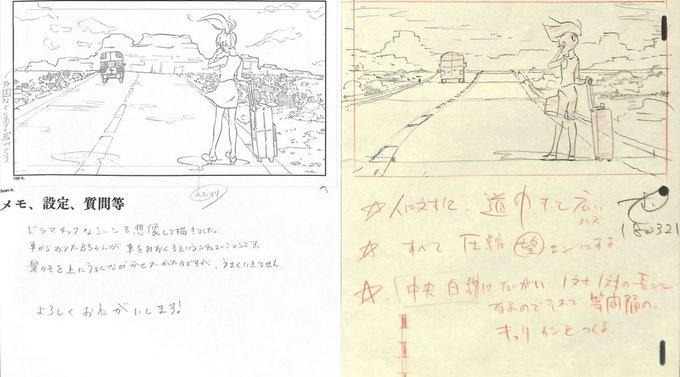 メモ、設定、質問等
ドラマチックなシーンを想像して描きました。
車からおりた ちゃんが 車を おくるというシチュエーションです。
髪の毛を上にうまくなびかせたかったのですが、うまくいきません。
よろしくおねがいします!
☆ 人に対して、道巾もっと広い
ハズ
180321
☆ すべて 圧縮 望 にする。
☆ 中央白線はたいがい 1対1対の長さに
なるのでそれで等間隔の、
をつくる